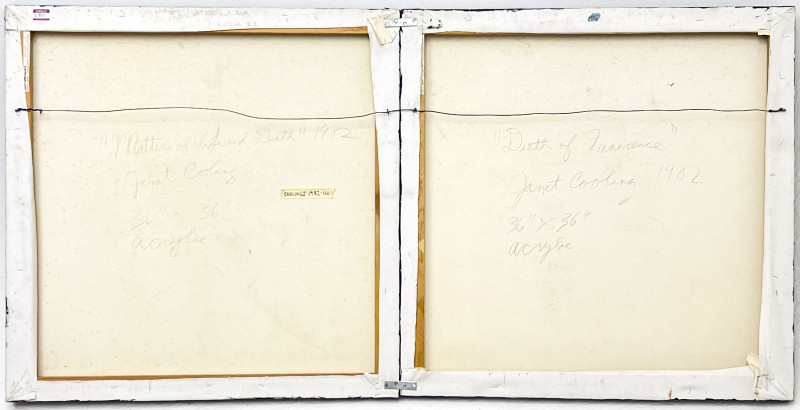 "Matters of Life and Death" 1982
Janet Cooling
36" x 36
acrylic
COOLING 1982
"Death of Innocence"
Janet Cooling 1982
36" x 36"
acrylic